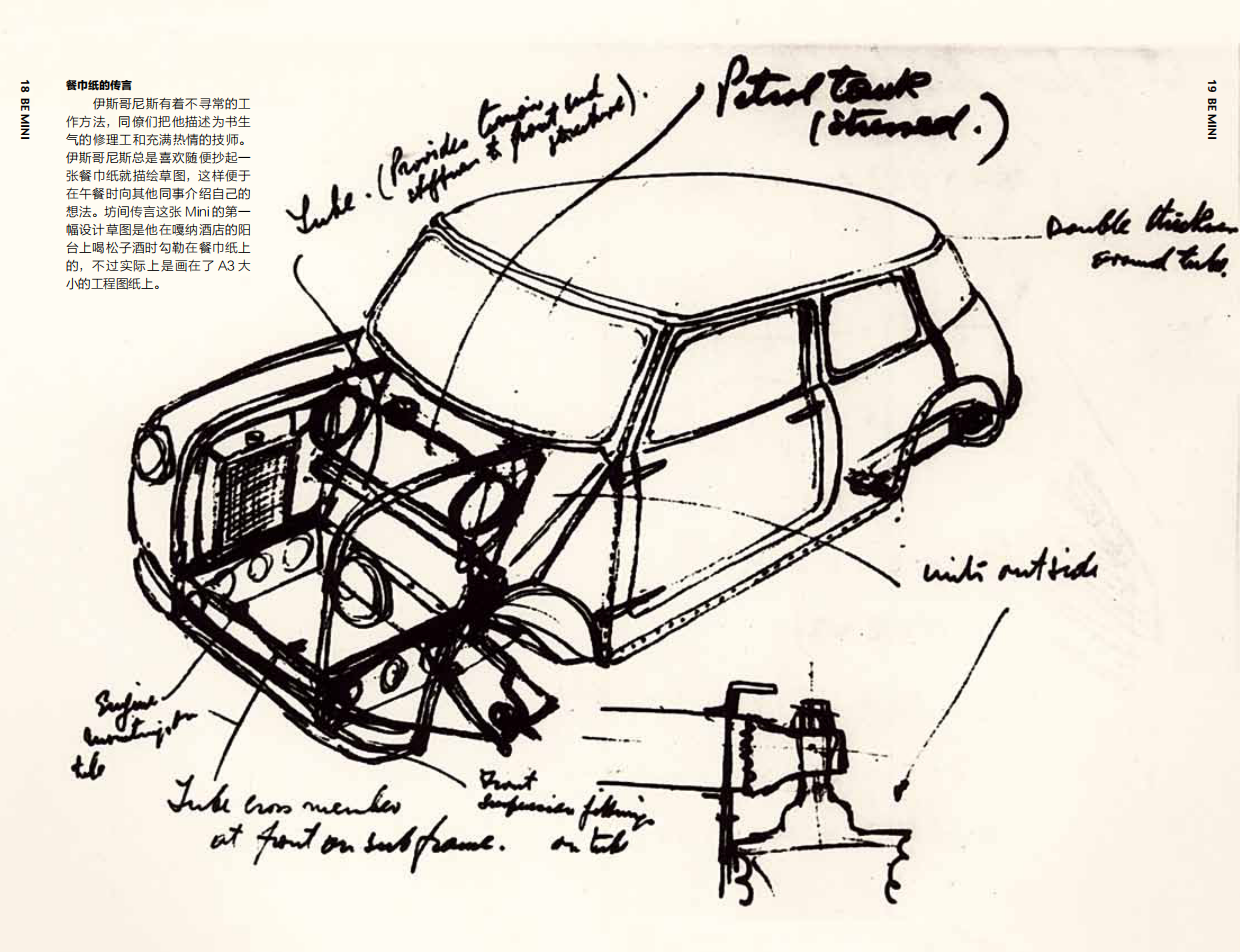 18 BE MINI
餐巾纸的传言
伊斯哥尼斯有着不寻常的工
作方法，同僚们把他描述为书生
气的修理工和充满热情的技师。
伊斯哥尼斯总是喜欢随便抄起一
张餐巾纸就描绘草图，这样便于
在午餐时向其他同事介绍自己的
想法。坊间传言这张 Mini 的第一
幅设计草图是他在嘎纳酒店的阳
台上喝松子酒时勾勒在餐巾纸上
的，不过实际上是画在了 A3 大
小的工程图纸上。
Tube. (Provides torsion
stiffness to front end
structure).
Petrol tank
(stressed.)
19 BE MINI
Double thickness
around tube.
units outside
Engine
mountings on
tube
Tube cross member
at front on subframe.
Front
suspension fittings
on tube